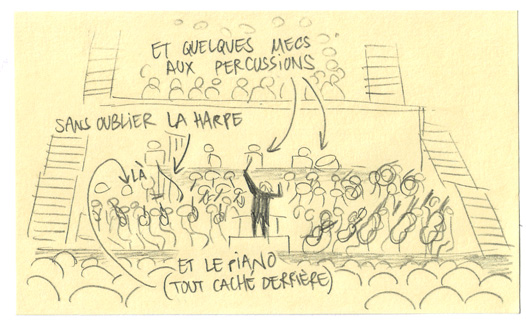 ET QUELQUES MECS
AUX PERCUSSIONS
SANS OUBLIER LA HARPE
LÀ
ET LE PIANO
(TOUT CACHÉ DERRIÈRE)